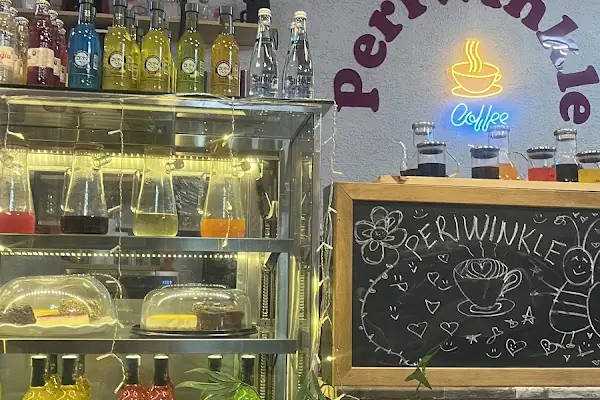 Periwinkle
Coffee
PERIWINKLE